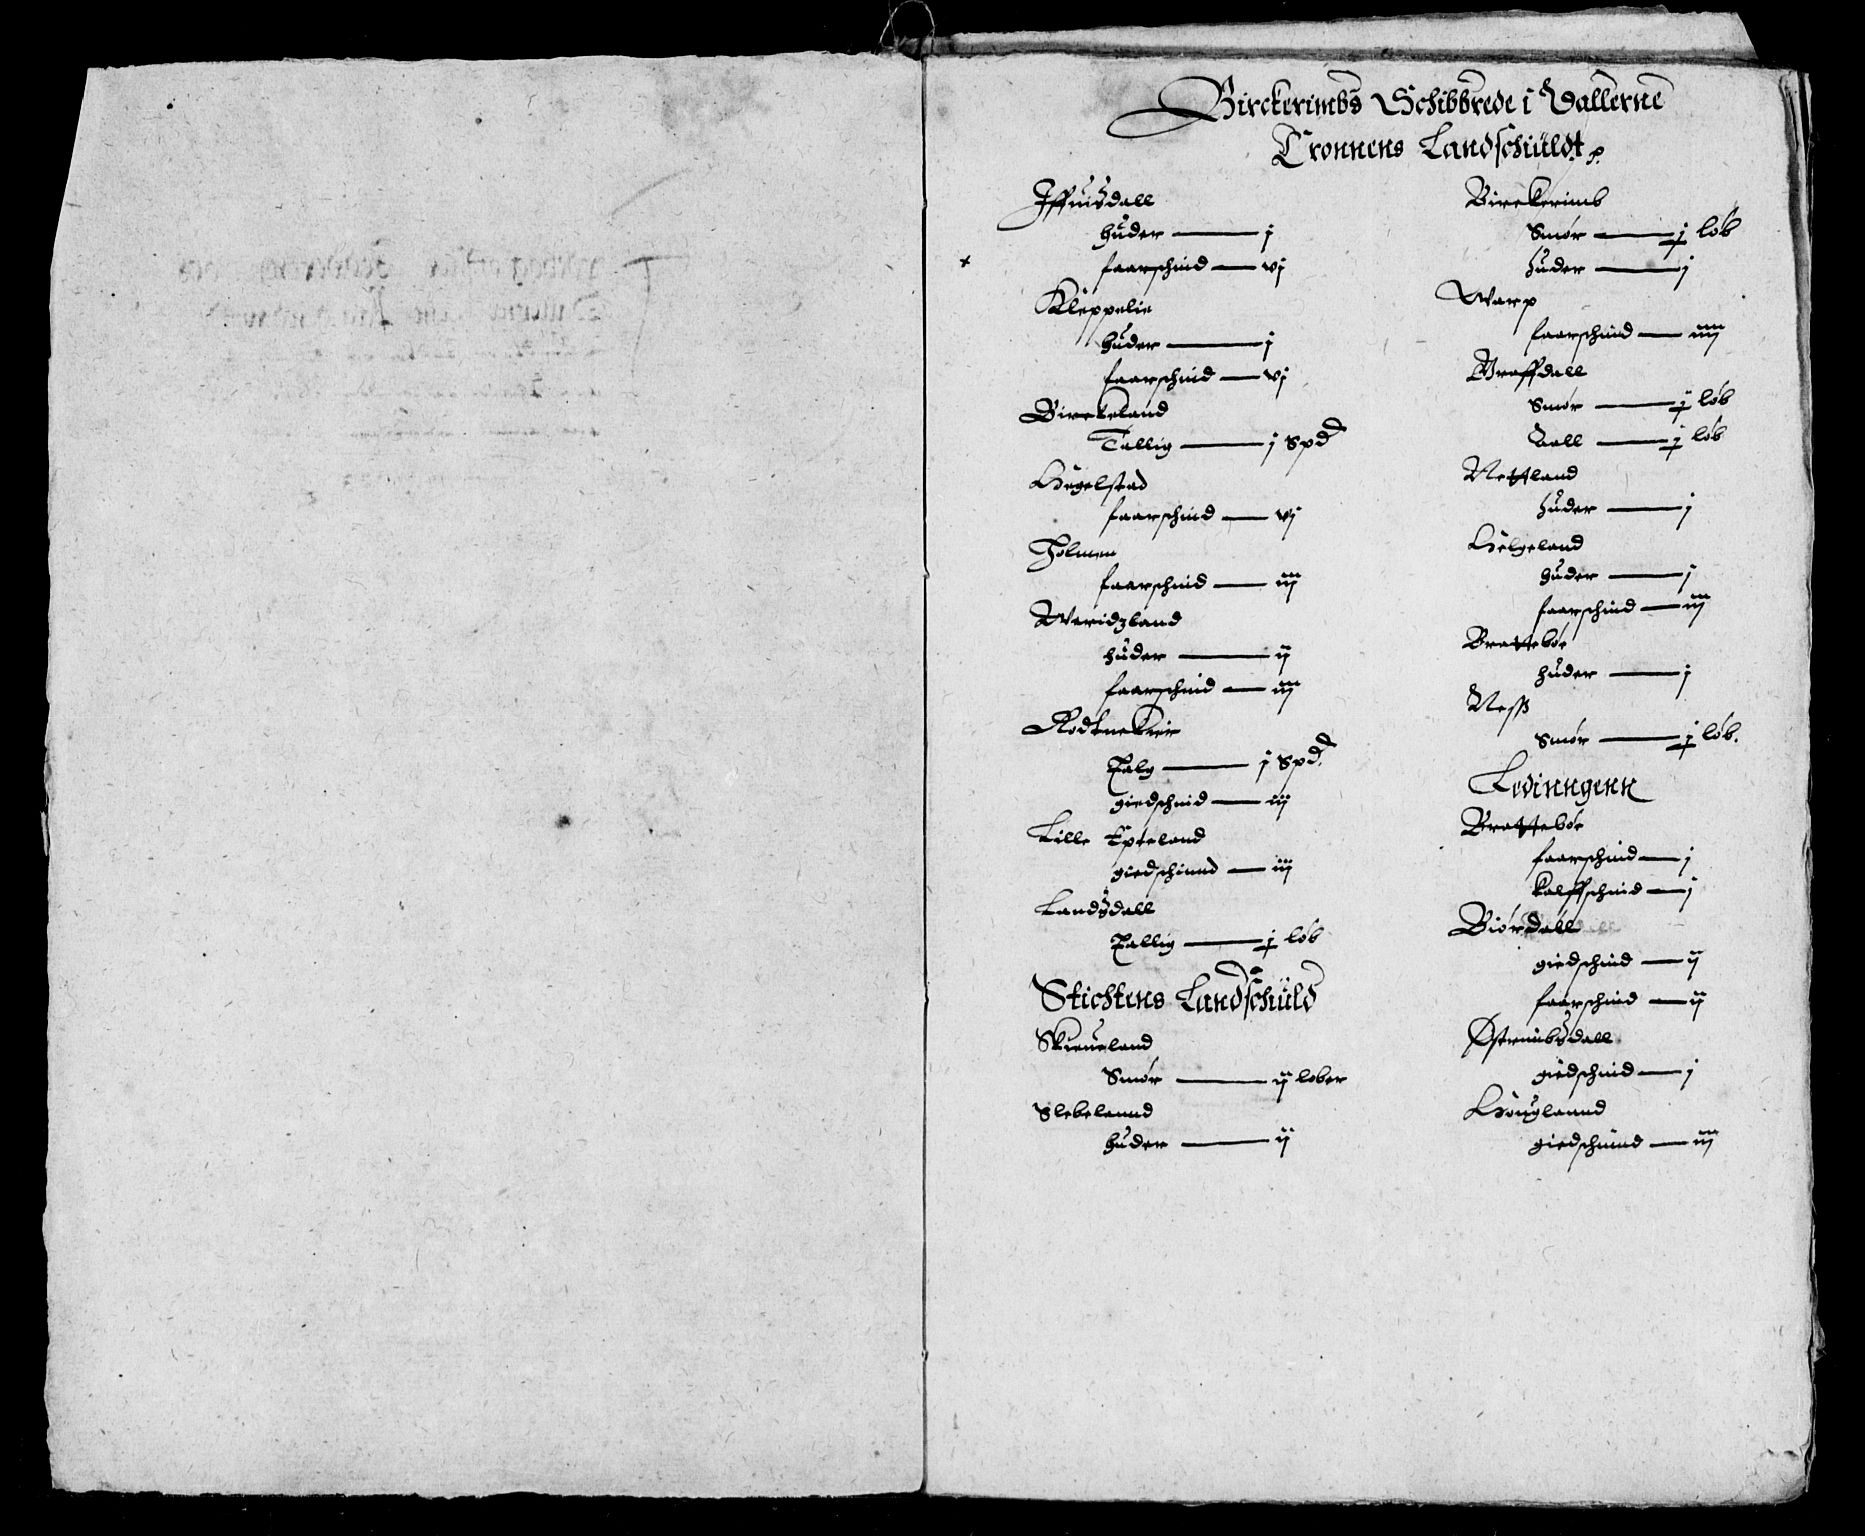 Birckerimbs Schibbrede i Dallerne
Cronnens Landschüldt
Iffuisdall
huder — j
faarschind — vj
Kleppelie
huder — j
faarschind — vj
Birckeland
Tallig — j Spd
Hegelstad
faarschind — vj
Tolmen
faarschind — iij
Weridzland
huder — ij
faarschind — iij
Rodtnekier
Talg — j Spd.
giedschind — iij
Lille Epteland
giedschinnd — iij
Landsdall
Tallig — j løb
Stichtens Landschüld
Skieueland
Smør — ij løber
Slebelannd
huder — ij
Birckerimb
Smør — j løb
huder — j
Warp
faarschind — iiij
Graffdall
Smør — j løb
Tall — j løb
Nettland
huder — j
Helgeland
huder — j
faarschind — iij
Brattebøe
huder — j
Ness
Smør — j løb.
Ledinngenn
Brattebøe
faarschind — j
kalffschind — j
Biørdall
giedschind — ij
faarschind — ij
Østrimbsdall
giedschind — j
Houglannd
giedschinnd — iij